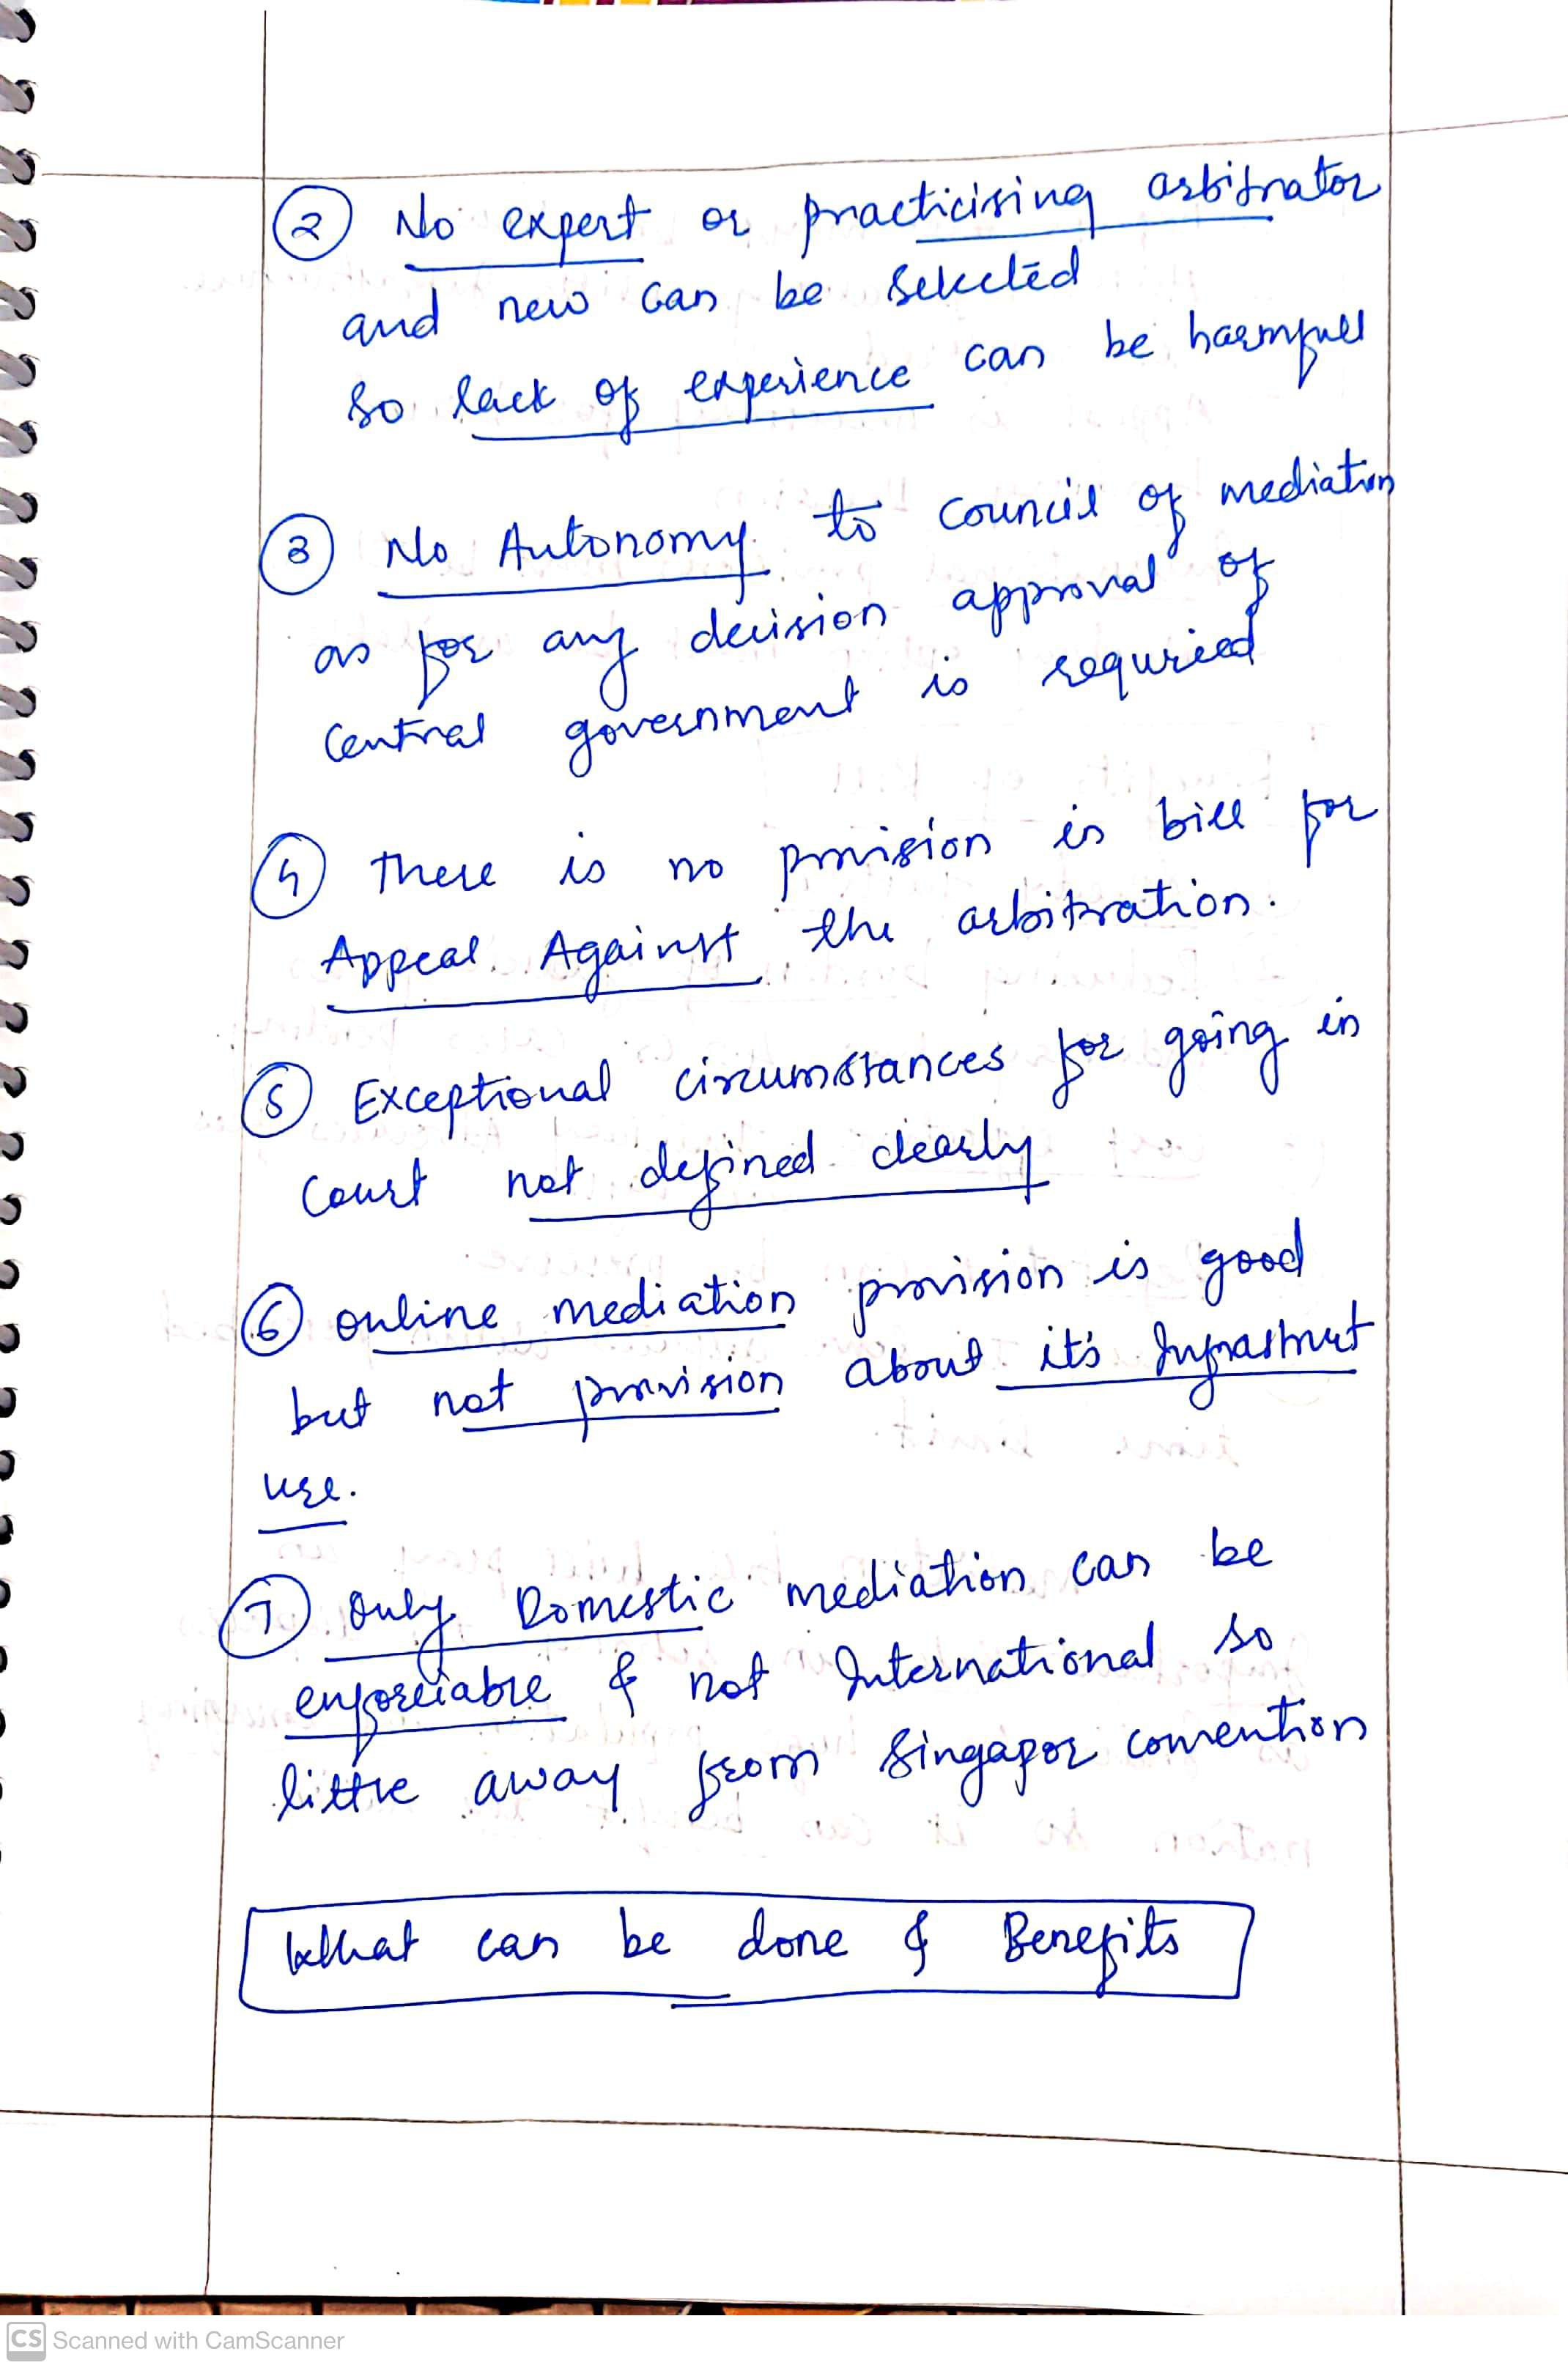 2 No expert or practicising arbitrator
and new can be selected
so lack of experience can be harmfull
3 No Autonomy to council of mediation
as for any decision approval of
Central government is requried
4 There is no provision in bill for
Appeal Against the arbitration.
5 Exceptional circumstances for going in
Court not defined clearly
6 online mediation provision is good
but not provision about it's Infrastruct
ure.
7 Only Domestic mediation can be
enforciable & not International so
little away from Singapor convention
What can be done & Benefits
CS Scanned with CamScanner